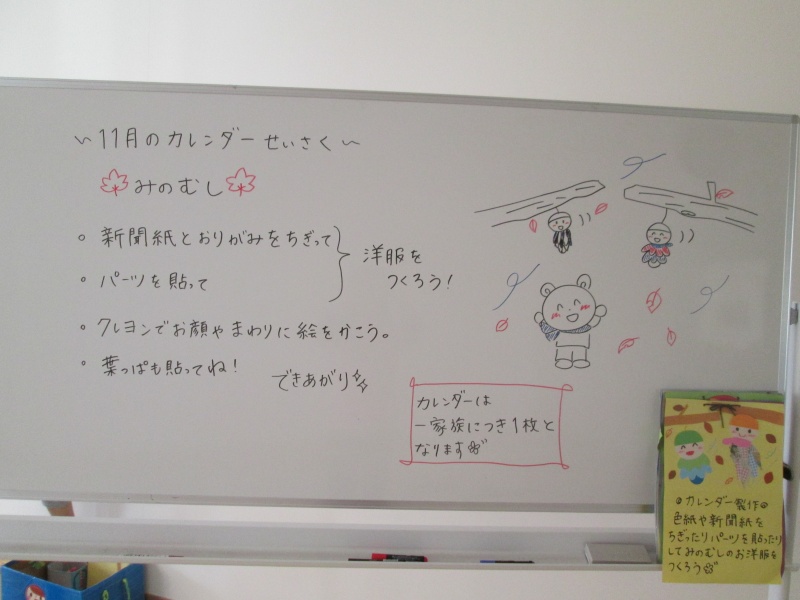 ～11月のカレンダーせいさく～
みのむし
・新聞紙とおりがみをちぎって
・パーツを貼って
洋服を
つくろう！
・クレヨンでお顔やまわりに絵をかこう。
・葉っぱも貼ってね！
できあがり
カレンダーは
一家族につき1枚と
なります
カレンダー製作
色紙や新聞紙を
ちぎったりパーツを貼ったり
してみのむしのお洋服を
つくろう